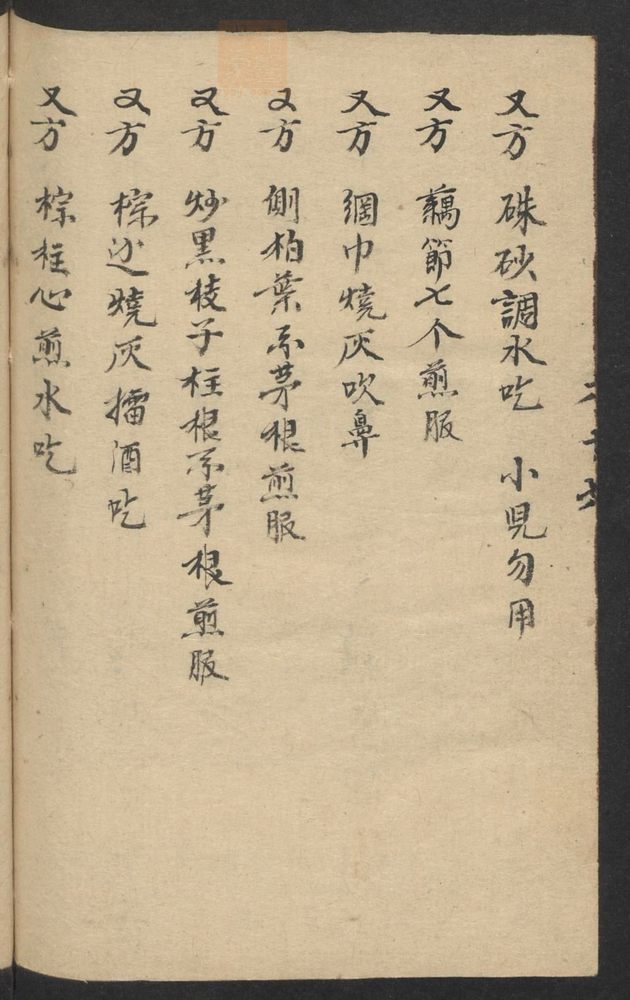 又方 硃砂調水吃 小児勿用
又方 藕節七个煎服
又方 網巾燒灰吹鼻
又方 側柏葉 茅根煎服
又方 炒黑枝子柱根 茅根煎服
又方 棕 燒灰擂酒吃
又方 棕柱心煎水吃